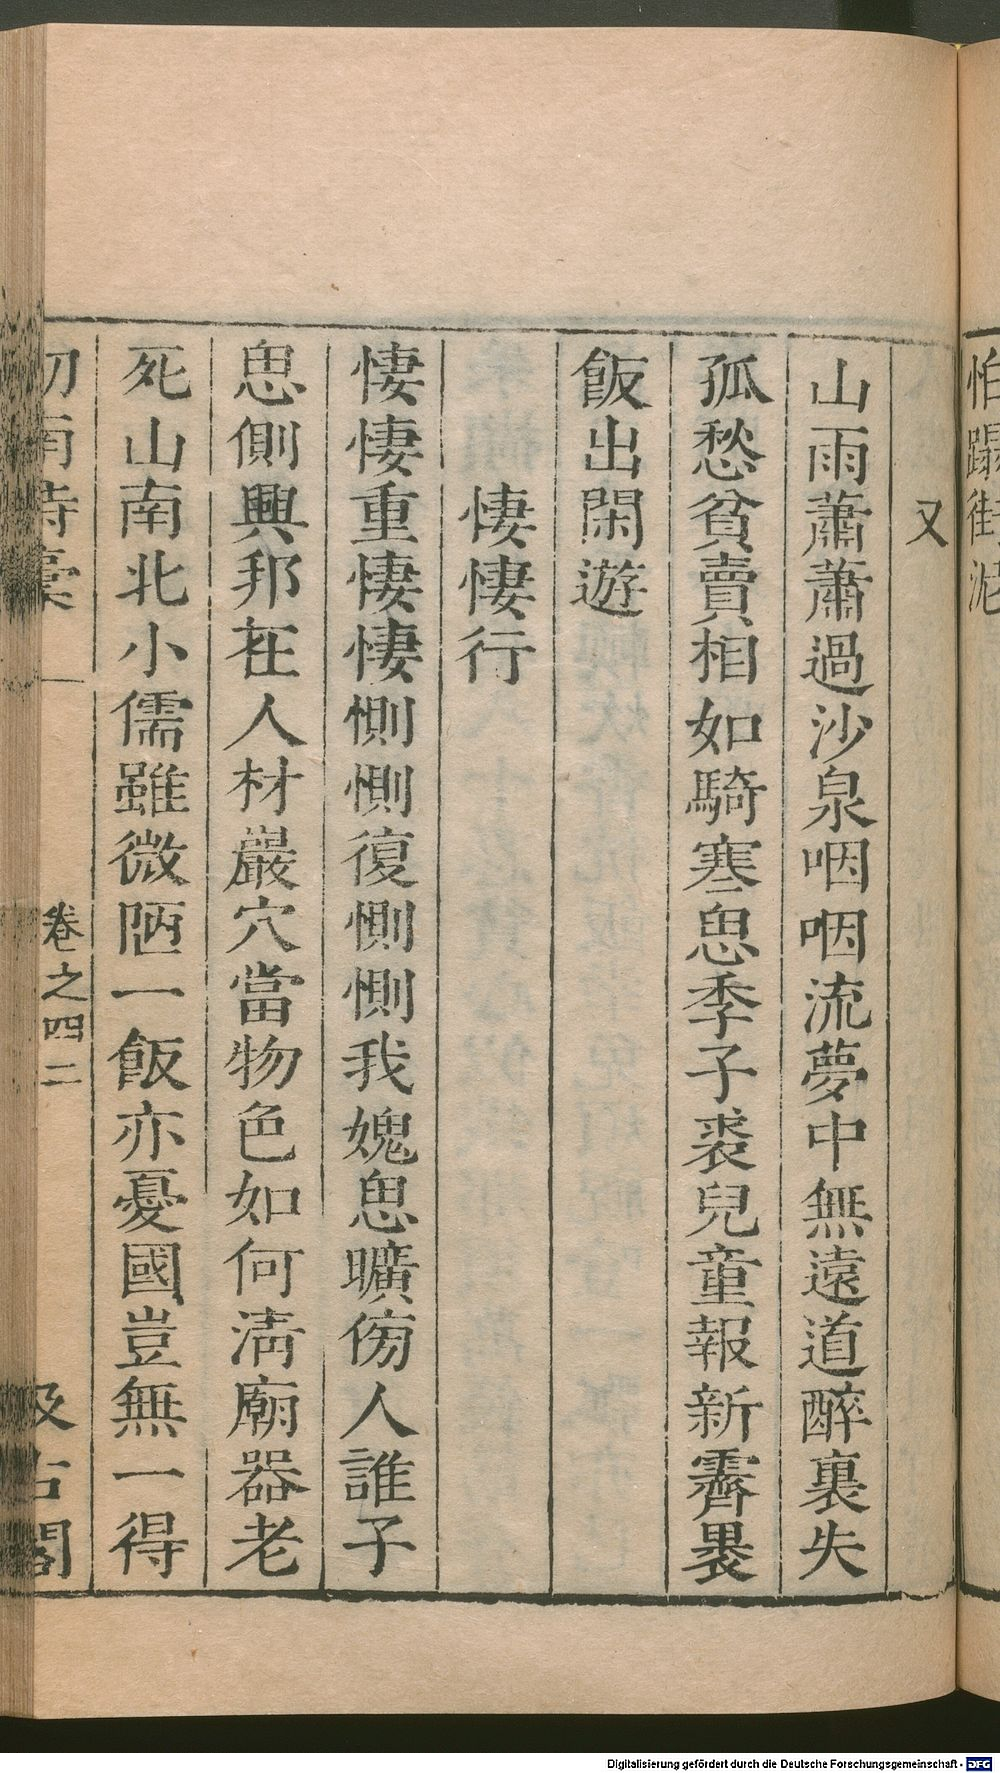 怕蹋街泥
又
山雨蕭蕭過沙泉咽咽流夢中無遠道醉裏失
孤愁貧賣相如騎寒思季子裘兒童報新霽裹
飯出閑遊
悽悽行
悽悽重悽悽惻惻復惻惻我媿思曠傍人誰子
思側興邦在人材巖穴當物色如何淸廟器老
死山南北小儒雖微陋一飯亦憂國豈無一得
卷之四 二
汲古閣
Digitalisierung gefördert durch die Deutsche Forschungsgemeinschaft - DFG